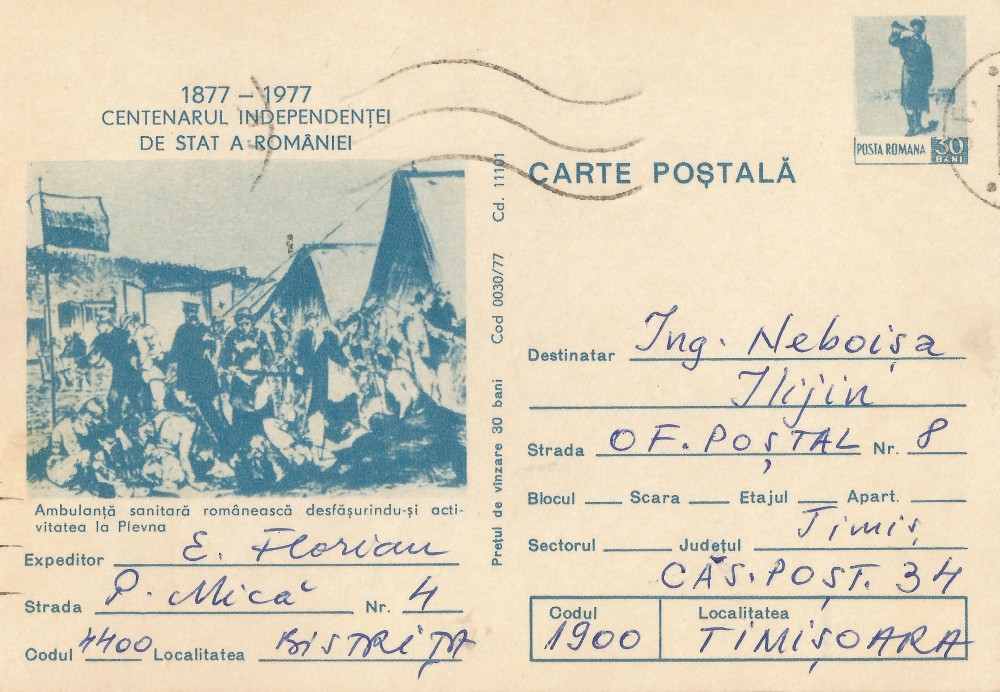 1877 – 1977
CENTENARUL INDEPENDENȚEI
DE STAT A ROMÂNIEI
Ambulanță sanitară românească desfășurîndu-și acti-
vitatea la Plevna
Expeditor E. Florian
Strada P. Mică Nr. 4
Codul 4400 Localitatea BISTRIȚA
Prețul de vînzare 30 bani Cod 0030/77 Cd. 11101
POSTA ROMANA 30
BANI
CARTE POȘTALĂ
Destinatar Ing. Neboișa
Ilijin
Strada OF. POȘTAL Nr. 8
Blocul Scara Etajul Apart.
Sectorul Județul Timiș
CĂS. POȘT. 34
Codul Localitatea
1900 TIMIȘOARA